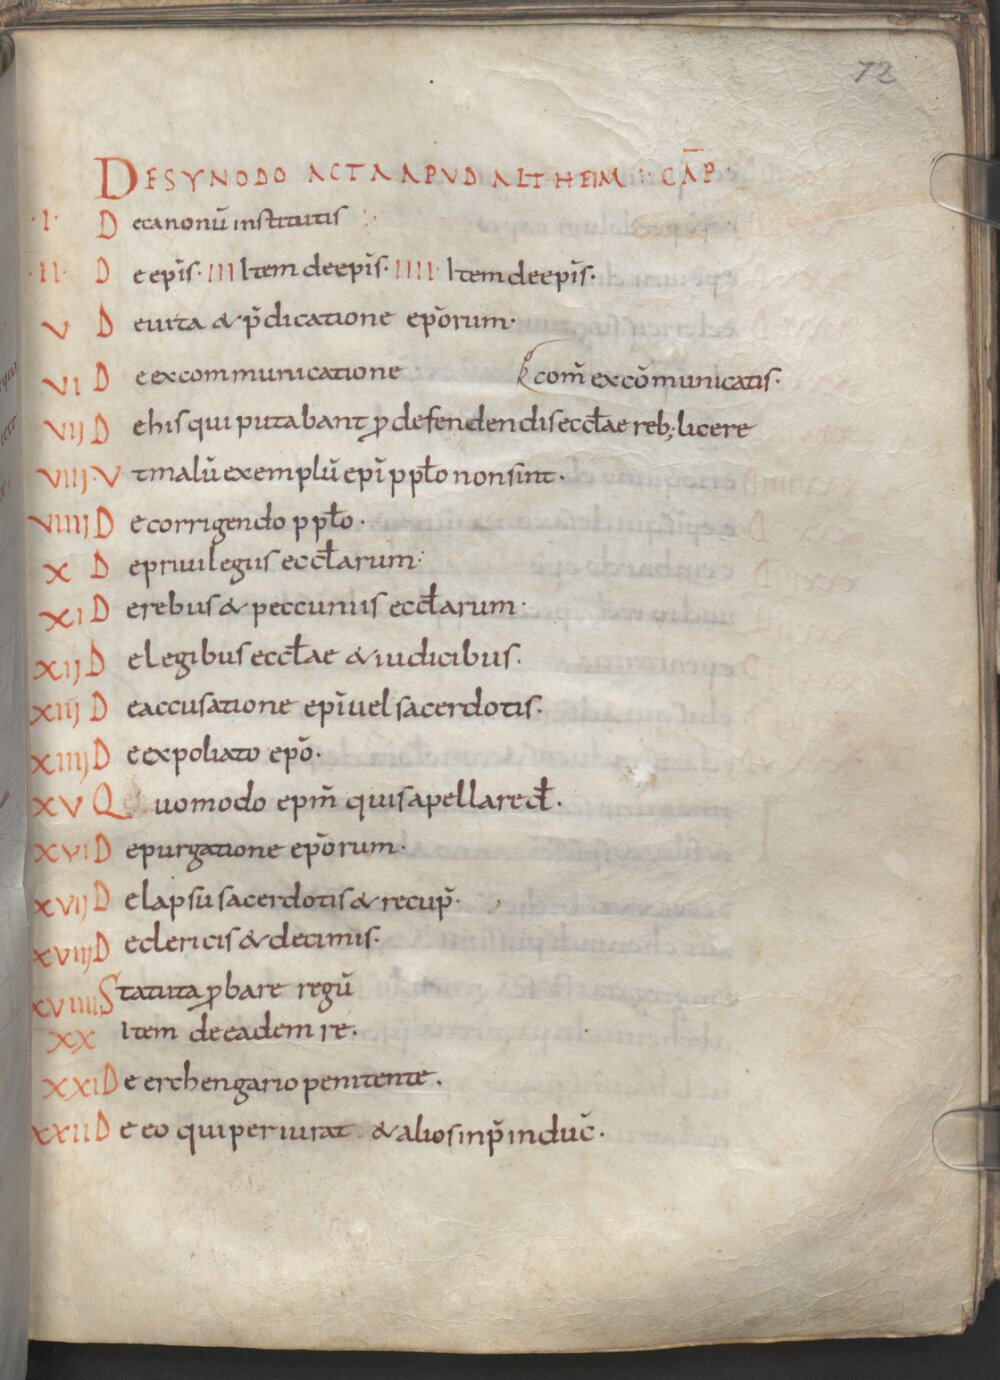 72
DE SYNODO ACTA APUD ALTHEIM : CAP̄.
·I· De canonū institutis :·
·II· De ep̄is· III Item de ep̄is· IIII· Item de ep̄is·
V De uita & p̄dicatione ep̄orum·
VI De excommunicatione com̄ excōmunicatis·
VII De his qui putabant ꝓ defendendis eccƚae reb; licere
VIII· Vt malū exemplū ep̄i ppƚo non sint·
VIIII De corrigendo ppƚo·
X De priuilegiis eccƚarum·
XI De rebus & peccuniis eccƚarum·
XII De legibus eccƚae & iudicibus·
XIII De accusatione ep̄i uel sacerdotis·
XIIII De expoliato ep̄o·
XV Quomodo ep̄m̄ quis apellare đ·
XVI De purgatione ep̄orum·
XVII De lapsu sacerdotis & recup̄·
XVIII De clericis & decimis·
XVIIII Statuta ꝓbare regū
XX Item de eadem re·
XXI De erchengario penitente·
XXII De eo qui periurat & alios in p̄ induc̄·